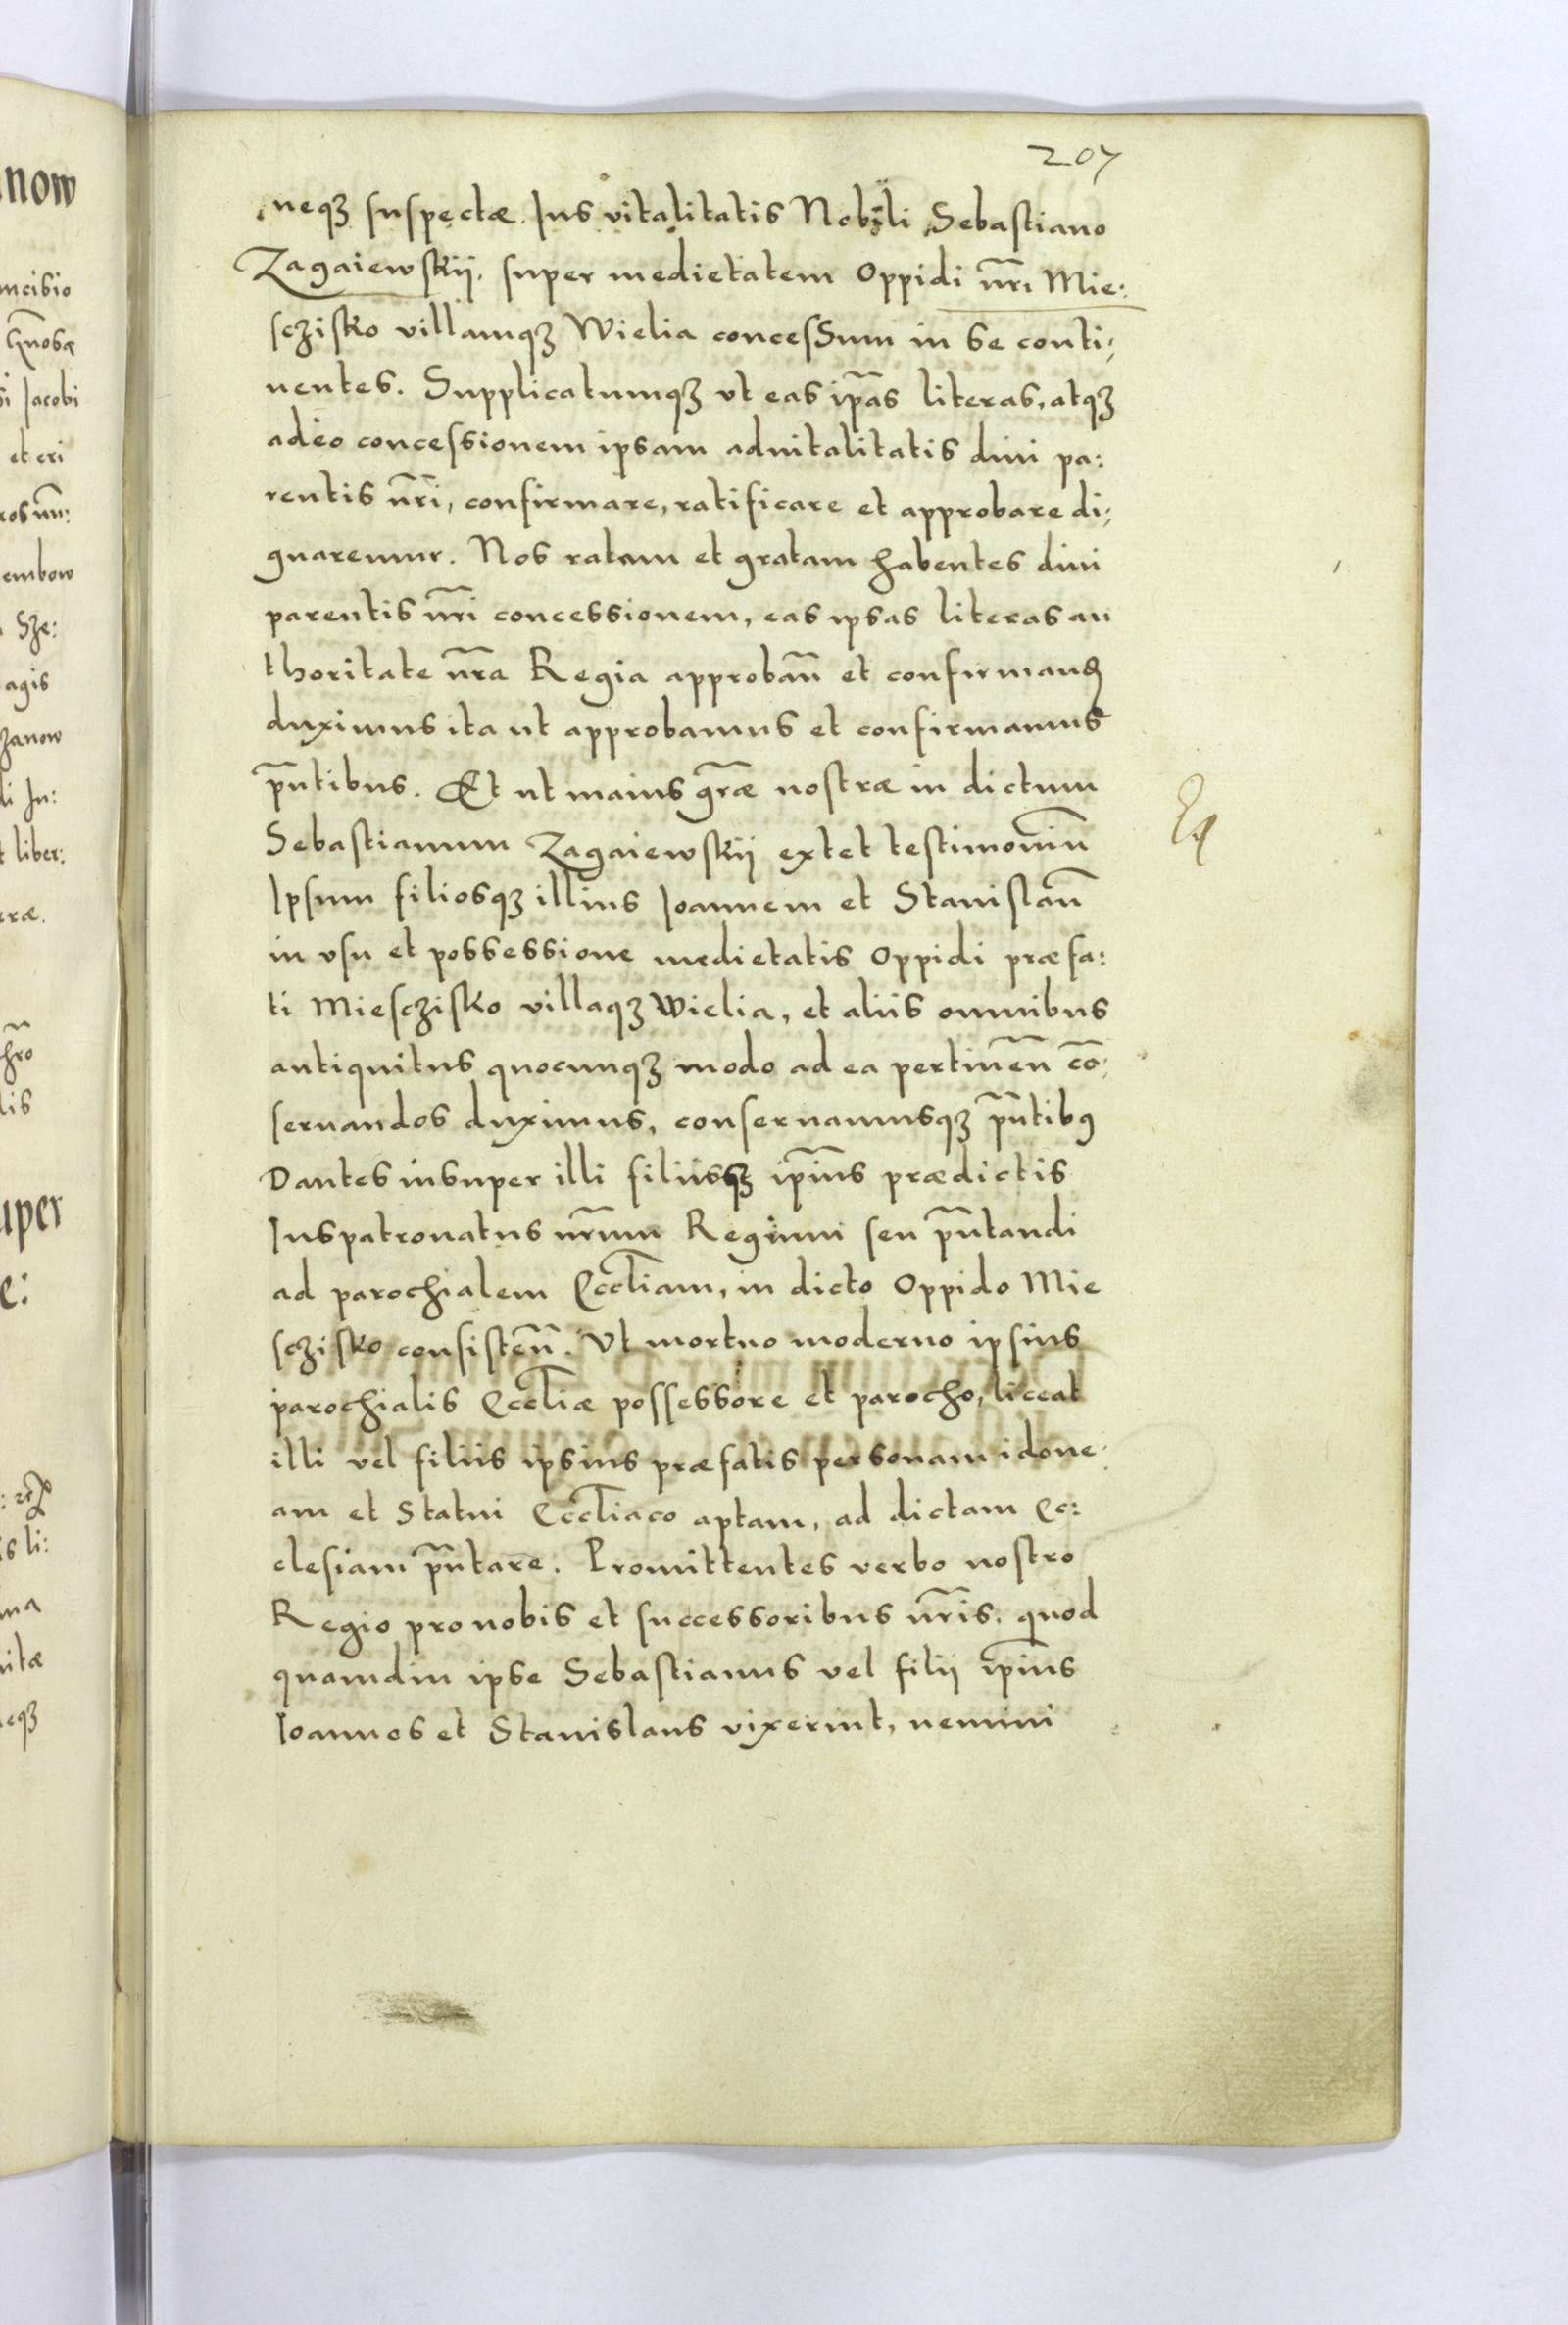 207
neqꝫ suspectæ. Ius vitalitatis Nobili Sebastiano
Zagaiewskii, super medietatem Oppidi nr̃i Mie:
sczisko villamqꝫ Wielia concessum in se conti:
nentes. Supplicatumqꝫ vt eas ip̃as literas, atqꝫ
adeo concessionem ipsam aduitalitatis diui pa:
rentis nr̃i, confirmare, ratificare et approbare di:
gnaremur. Nos ratam et gratam habentes diui
parentis nr̃i concessionem, eas ipsas literas au
thoritate nr̃a Regia approbañ et confirmandꝭ
duximus ita ut approbamus et confirmamus
p̃ntibus. Et ut maius gr̃æ nostræ in dictum
Sebastianum Zagaiewskii extet testimoniũ
Ipsum filiosqꝫ illius Ioannem et Stanislaũ
in vsu et possessione medietatis Oppidi præfa:
ti Miesczisko villaqꝫ Wielia, et aliis omnibus
antiquitus quocunqꝫ modo ad ea pertineñ cõ:
seruandos duximus, conseruamusqꝫ p̃ntibꝰ
Dantes insuper illi filiisqꝫ ip̃ius prædictis
Iuspatronatus nr̃um Regium seu p̃ntandi
ad parochialem Eccl̃iam, in dicto Oppido Mie
sczisko consisteñ. Vt mortuo moderno ipsius
parochialis Eccl̃iæ possessore et parocho, liceat
illi vel filiis ipsius præfatis personam idone:
am et Statui Eccl̃iaco aptam, ad dictam Ec:
clesiam p̃ntare. Promittentes verbo nostro
Regio pro nobis et successoribus nr̃is, quod
quamdiu ipse Sebastianus vel filii ip̃ius
Ioannes et Stanislaus vixerint, nemini